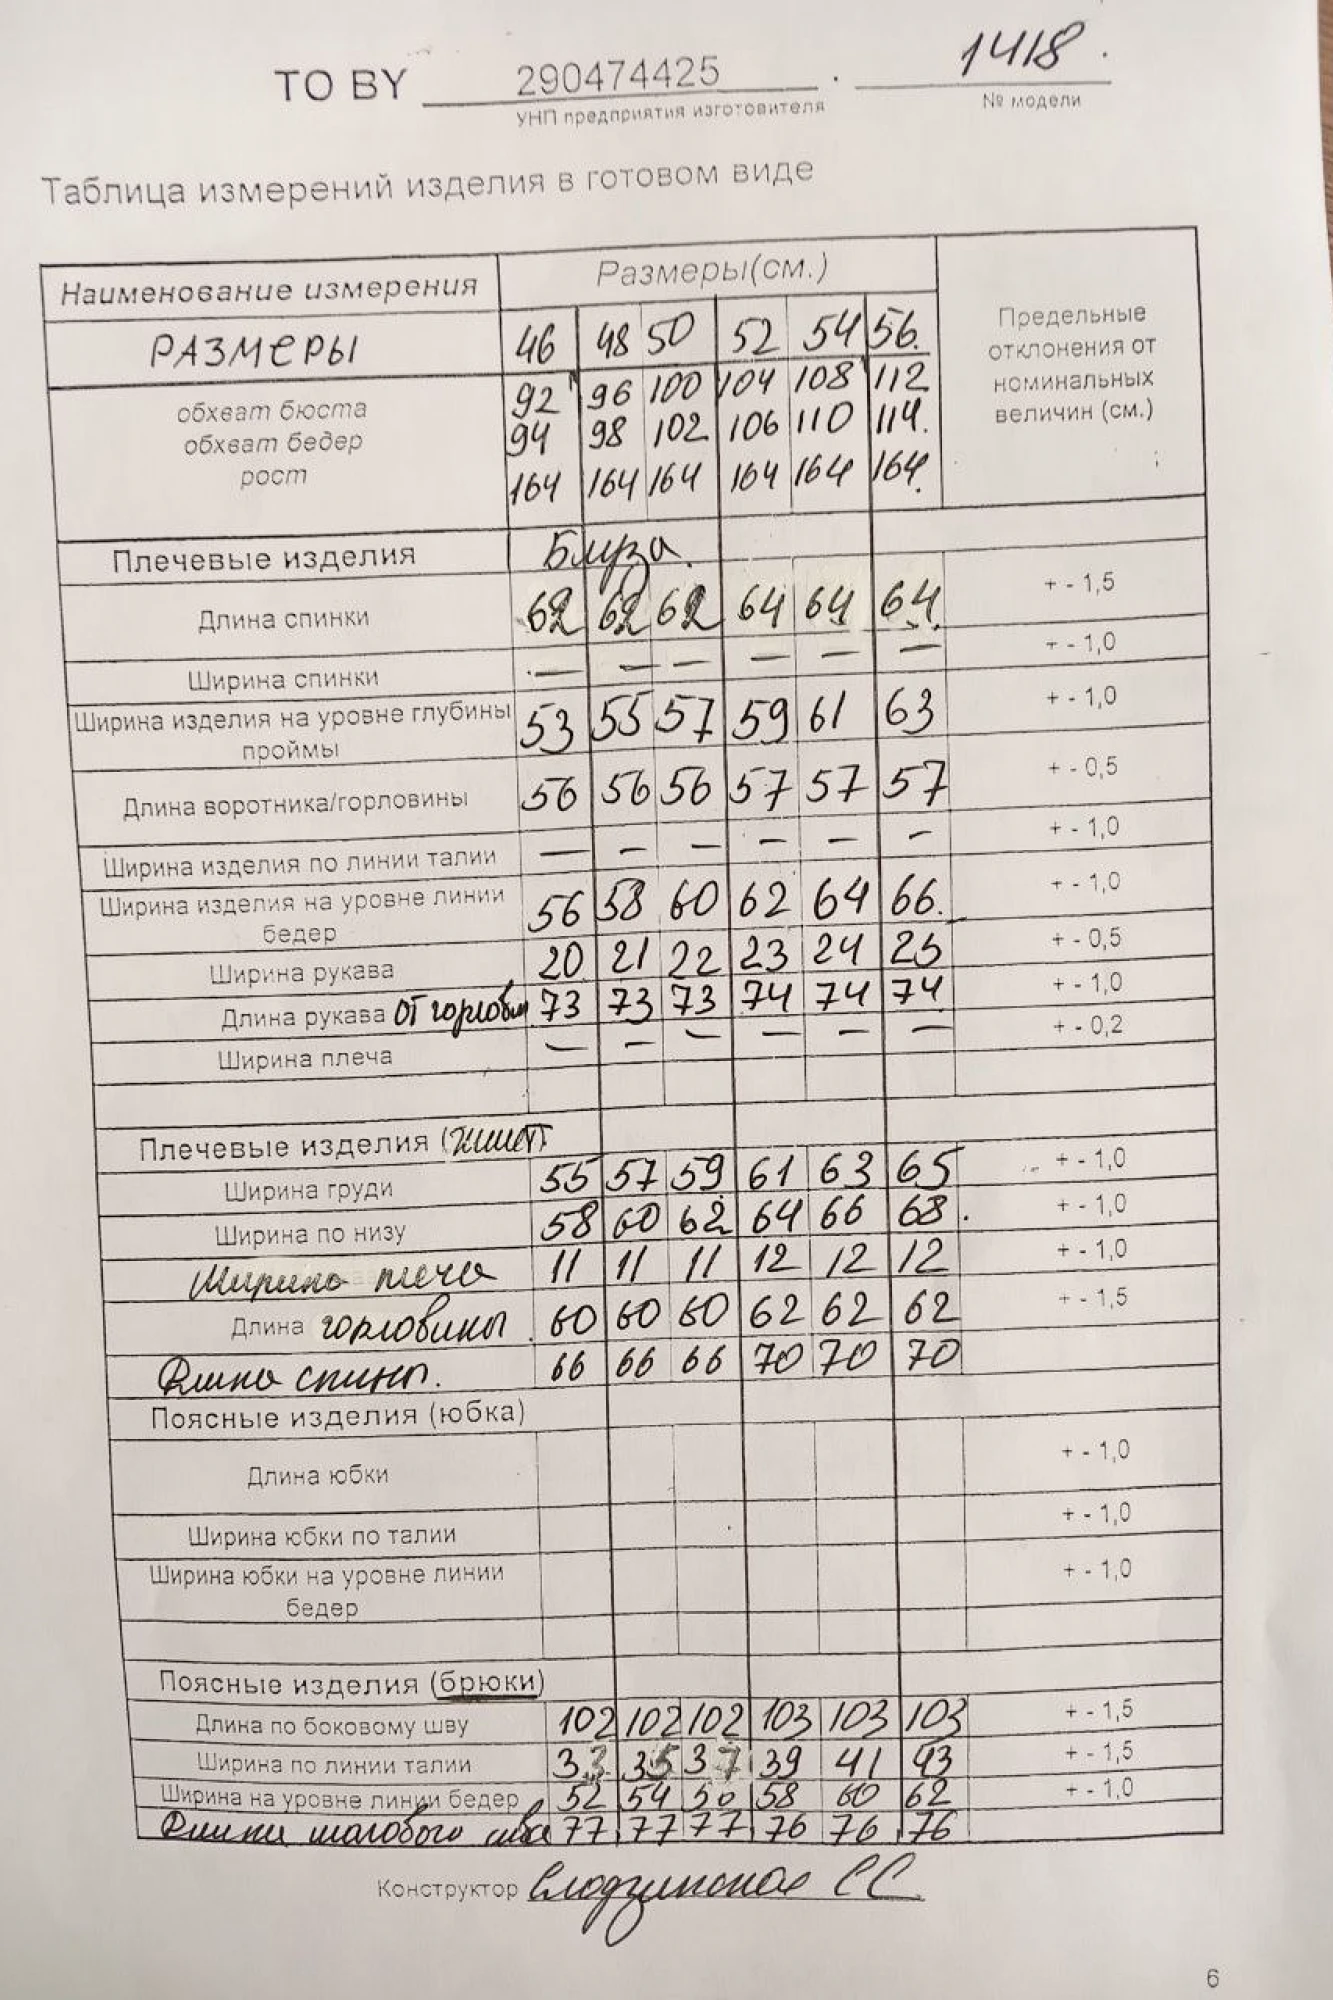 ТО BY 290474425 . 1418.
УНП предприятия изготовителя № модели
Таблица измерений изделия в готовом виде
Наименование измерения Размеры(см.) Предельные отклонения от номинальных величин (см.)
РАЗМЕРЫ 46 48 50 52 54 56.
обхват бюста 92 96 100 104 108 112
обхват бедер 94 98 102 106 110 114.
рост 164 164 164 164 164 164.
Плечевые изделия Блуза.
Длина спинки 62 62 62 64 64 64 + - 1,5
Ширина спинки — — — — — — + - 1,0
Ширина изделия на уровне глубины проймы 53 55 57 59 61 63 + - 1,0
Длина воротника/горловины 56 56 56 57 57 57 + - 0,5
Ширина изделия по линии талии — — — — — — + - 1,0
Ширина изделия на уровне линии бедер 56 58 60 62 64 66. + - 1,0
Ширина рукава 20 21 22 23 24 25 + - 0,5
Длина рукава от горловины 73 73 73 74 74 74 + - 1,0
Ширина плеча — — — — — — + - 0,2
Плечевые изделия (жилет)
Ширина груди 55 57 59 61 63 65 + - 1,0
Ширина по низу 58 60 62 64 66 68. + - 1,0
Ширина плеча 11 11 11 12 12 12 + - 1,0
Длина горловины 60 60 60 62 62 62 + - 1,5
Длина спины. 66 66 66 70 70 70
Поясные изделия (юбка)
Длина юбки + - 1,0
Ширина юбки по талии + - 1,0
Ширина юбки на уровне линии бедер + - 1,0
Поясные изделия (брюки)
Длина по боковому шву 102 102 102 103 103 103 + - 1,5
Ширина по линии талии 33 35 37 39 41 43 + - 1,5
Ширина на уровне линии бедер 52 54 56 58 60 62 + - 1,0
Длина шагового шва 77 77 77 76 76 76
Конструктор Слодзинская СС
6